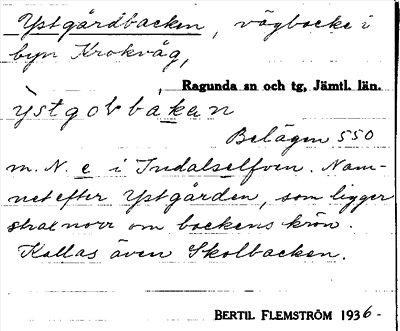 Ystgårdbacken, vägbacke i
byn Krokvåg,
Ragunda sn och tg, Jämtl. län.
ỳstgoḷbàkan
Belägen 550
m. N. e. i Indalselfven. Nam-
net efter Ystgården, som ligger
strax norr om backens krön.
Kallas även Skolbacken.
BERTIL FLEMSTRÖM 1936-